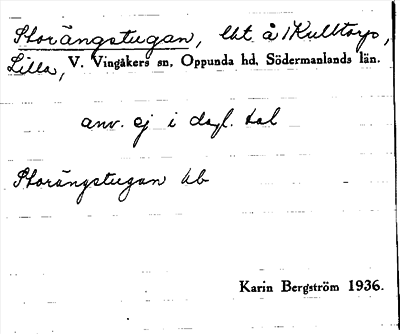 Storängstugan, lht. å Kulltorp,
Lilla, V. Vingåkers sn, Oppunda hd, Södermanlands län.
anv. ej i dagl. tal
Storängstugan kb
Karin Bergström 1936.